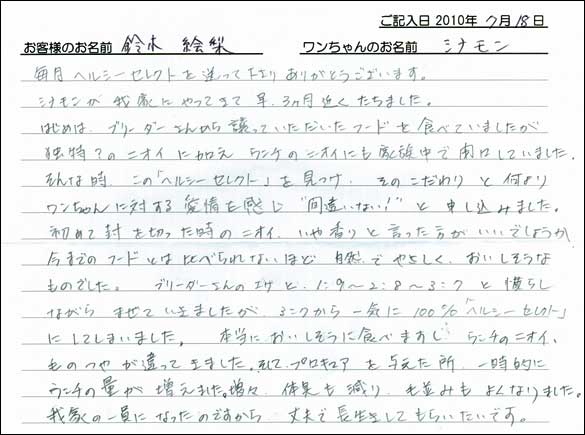 ご記入日 2010年 7月 18日
お客様のお名前 鈴木 絵梨 ワンちゃんのお名前 シナモン
毎月 ヘルシーセレクトを送って下さり ありがとうございます。
シナモンが 我家にやってきて 早、3ヶ月近くたちました。
はじめは、ブリーダーさんから譲っていただいたフードを食べていましたが
独特?のニオイに加え ウンチのニオイにも家族中で閉口していました。
そんな時、この「ヘルシーセレクト」を見つけ、そのこだわりと何より
ワンちゃんに対する愛情を感じ "間違いない!" と申し込みました。
初めて封を切った時のニオイ、いや香りと言った方がいいでしょうか
今までのフードとは比べられないほど 自然で やさしく、おいしそうな
ものでした。 ブリーダーさんのエサと、1:9～2:8～3:7 と慣らし
ながら まぜていきましたが、3:7から一気に 100%「ヘルシーセレクト」
にしてしまいました。 本当においしそうに食べますし、ウンチのニオイ、
ものつやが違ってきました。そして、プロキュアを与えた所、一時的に
ウンチの量が増えました。増々、体臭も減り、毛並みもよくなりました。
我家の一員になったのですから 丈夫で長生きしてもらいたいです。